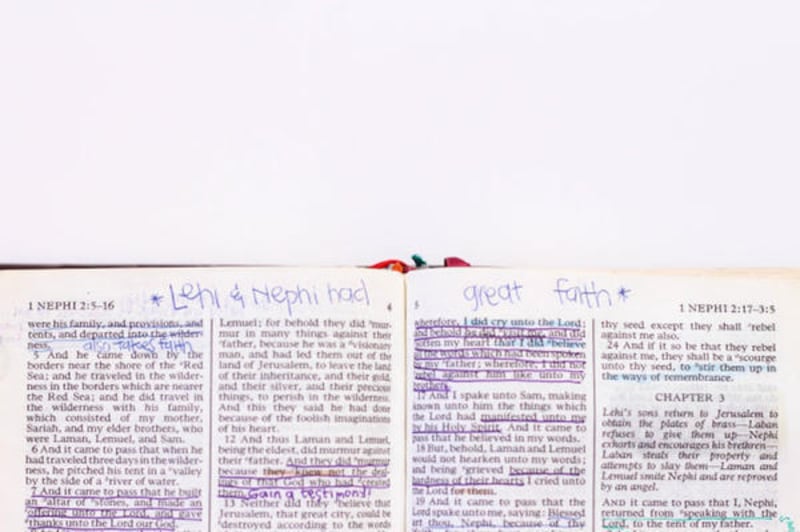 * Lehi & Nephi had great faith *
1 NEPHI 2:5–16
4
5
1 NEPHI 2:17–3:5
were his family, and provisions, and
tents, and departed into the wilder-
ness,
also takes faith
5 And he came down by the
borders near the shore of the ᵃRed
Sea; and he traveled in the wilder-
ness in the borders which are nearer
the Red Sea; and he did travel in
the wilderness with his family,
which consisted of my mother,
Sariah, and my elder brothers, who
were Laman, Lemuel, and Sam.
6 And it came to pass that when he
had traveled three days in the wilder-
ness, he pitched his tent in a ᵃvalley
by the side of a ᵇriver of water.
7 And it came to pass that he built
an ᵃaltar of ᵇstones, and made an
offering unto the Lord, and gave
ᶜthanks unto the Lord our God.
Lemuel; for behold they did ᵃmur-
mur in many things against their
ᵇfather, because he was a ᶜvisionary
man, and had led them out of the
land of Jerusalem, to leave the land
of their inheritance, and their gold,
and their silver, and their precious
things, to perish in the wilderness.
And this they said he had done
because of the foolish imaginations
of his heart.
12 And thus Laman and Lemuel,
being the eldest, did murmur against
their ᵃfather. And they did ᵇmurmur
because they ᶜknew not the deal-
ings of that God who had ᵈcreated
them.
Gain a testimony!
13 Neither did they ᵃbelieve that
Jerusalem, that great city, could be
ᵇdestroyed according to the words
wherefore, I did cry unto the Lord;
and behold he did ᵃvisit me, and did
soften my heart that I did ᵇbelieve
all the words which had been spoken
by my ᶜfather; wherefore, I did not
rebel against him like unto my
brothers.
17 And I spake unto Sam, making
known unto him the things which
the Lord had manifested unto me
by his Holy Spirit. And it came to
pass that he believed in my words.
18 But, behold, Laman and Lemuel
would not hearken unto my words;
and being ᵃgrieved because of the
hardness of their hearts I cried unto
the Lord for them.
19 And it came to pass that the
Lord spake unto me, saying: Blessed
art thou, Nephi, because of thy
thy seed except they shall ᵃrebel
against me also.
24 And if it so be that they rebel
against me, they shall be a ᵃscourge
unto thy seed, to ᵇstir them up in
the ways of remembrance.
CHAPTER 3
Lehi's sons return to Jerusalem to
obtain the plates of brass—Laban
refuses to give them up—Nephi
exhorts and encourages his brethren—
Laban steals their property and
attempts to slay them—Laman and
Lemuel smite Nephi and are reproved
by an angel.
AND it came to pass that I, Nephi,
returned from ᵃspeaking with the
Lord, to the tent of my father.